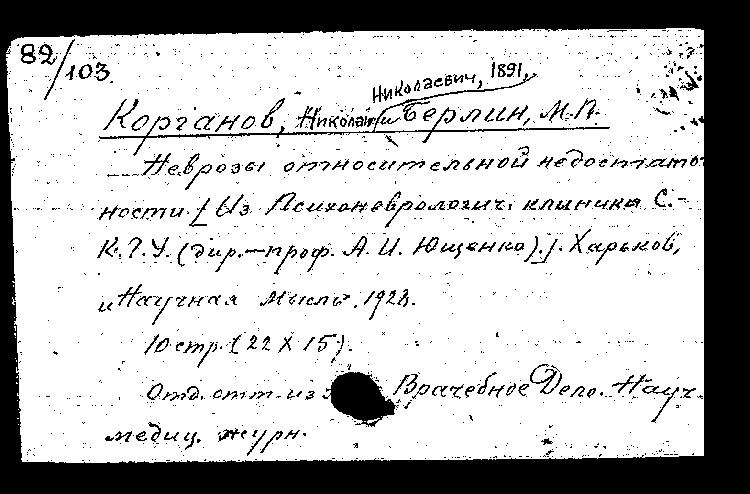 82/103
Николаевич, 1891,
Корганов, Николай и Берлин, М.П.
Неврозы относительной недостаточ
ности [Из Психоневрологич. клиники С.-
К.Г.У. (дир.-проф. А.И. Ющенко).]. Харьков,
"Научная мысль". 1928.
10 стр. (22 X 15).
Отд. отт. из: Врачебное Дело. Науч.
медиц. журн.